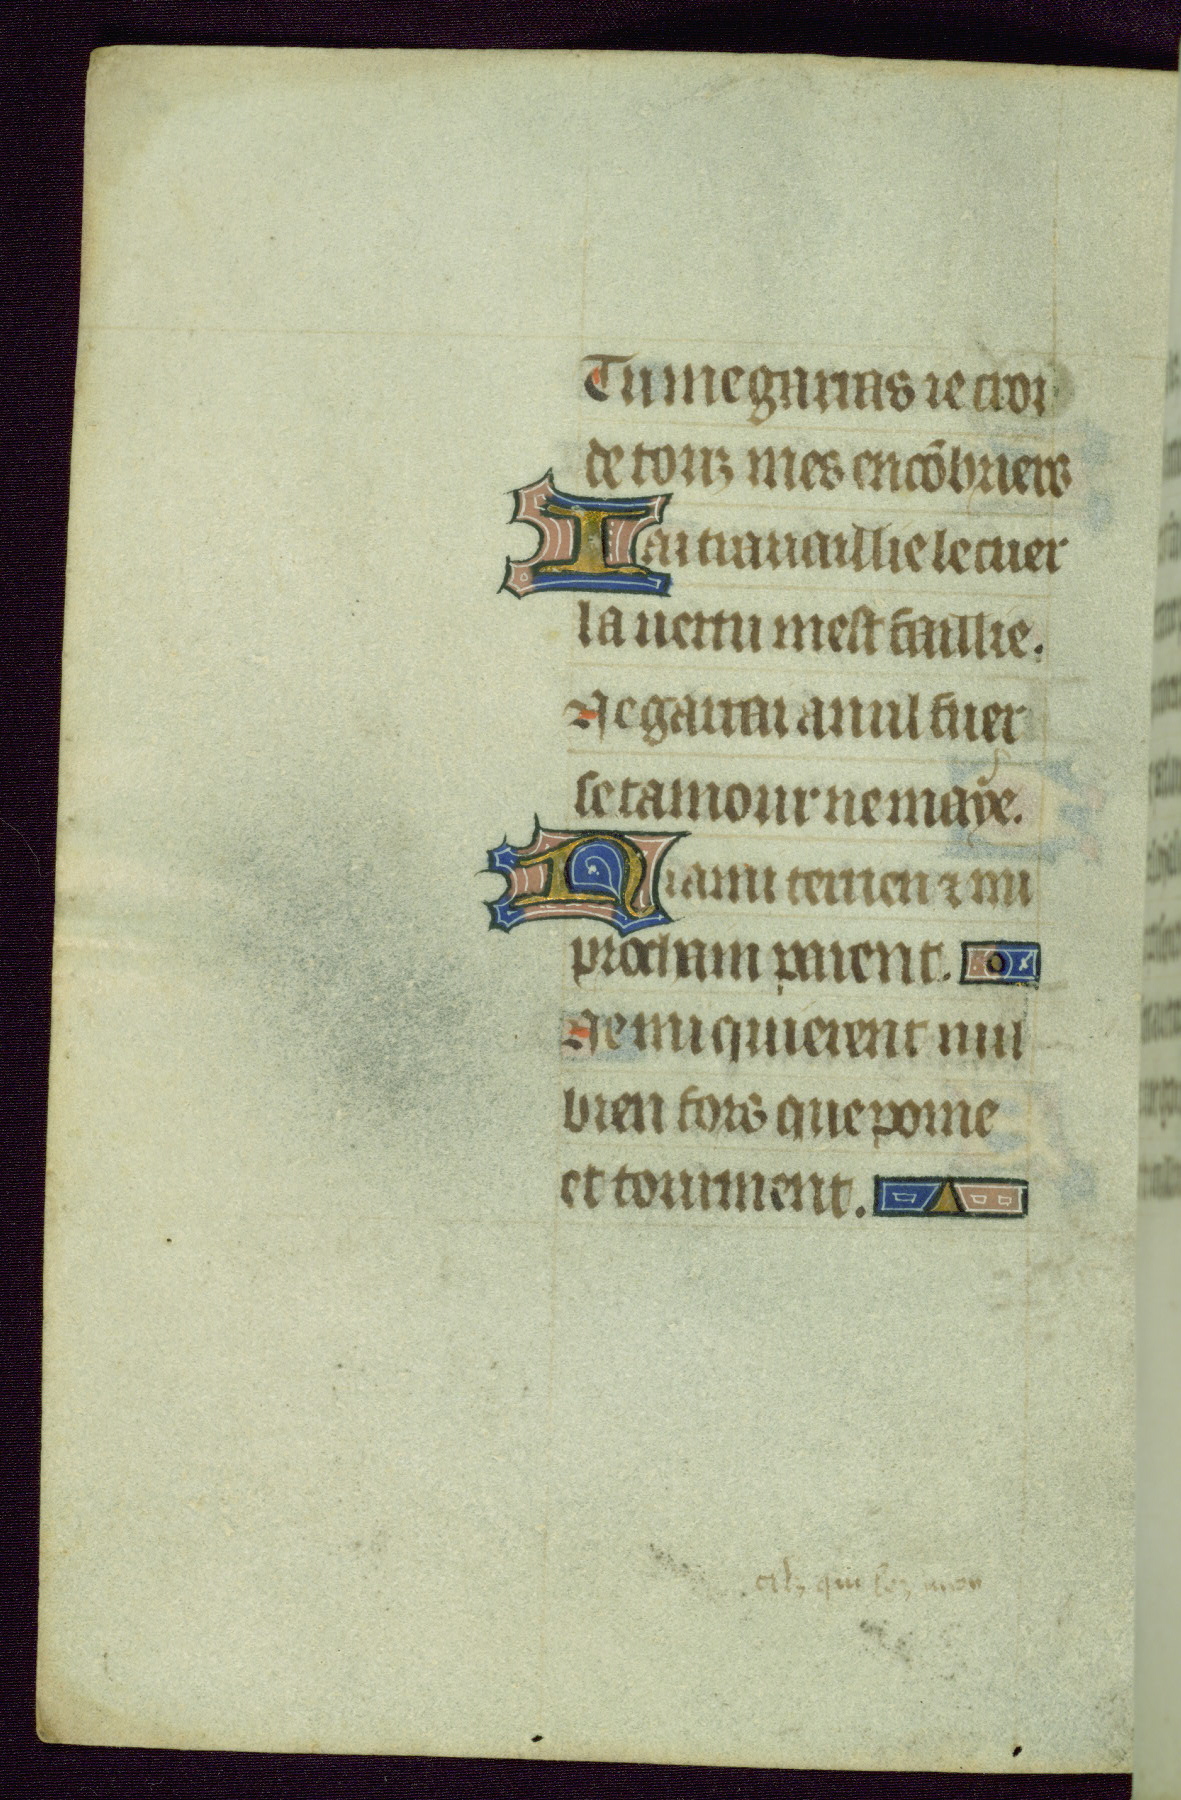 Tu me garras ie croi
de touz mes encōbriers
I ai trauaillie le cuer
la uertu mest faillie.
Ne garrai a nul fuer
se tamour ne maÿe.
Mi ami terrien ⁊ mi
prochain parent.
Ne mi quierent nul
bien fors que poine
et tourment.
cilz qui lez mon